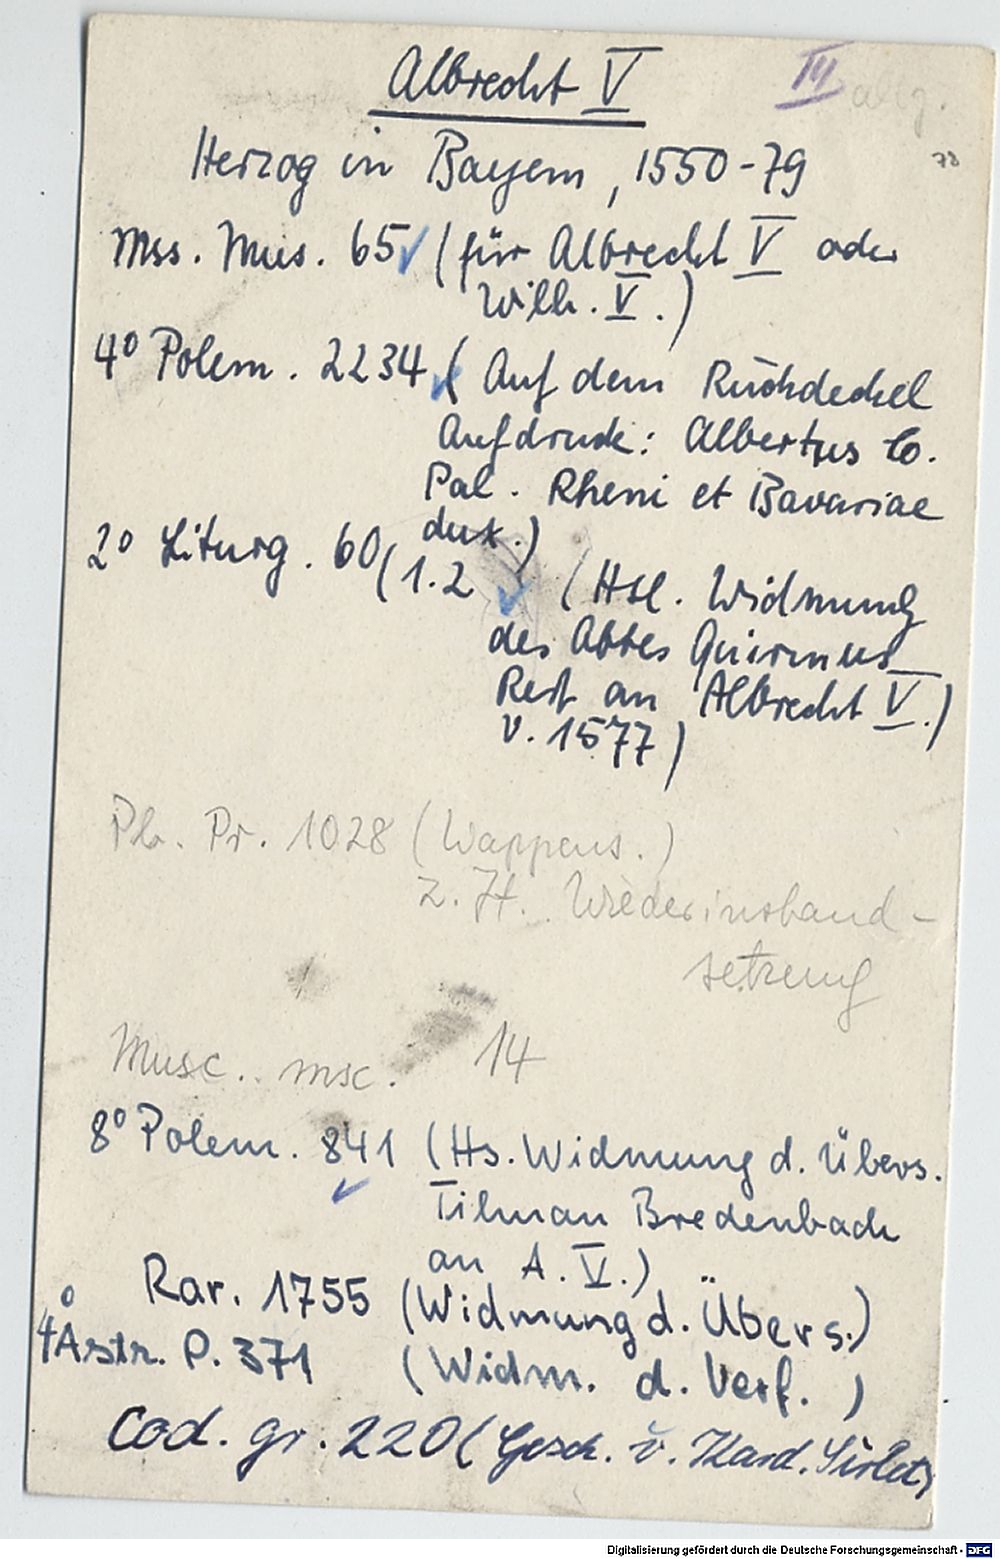 Albrecht V
IV allg.
78
Herzog in Bayern, 1550-79
Mss. Mus. 65 ✓ (für Albrecht V oder
Wilh. V.)
4° Polem. 2234 ✓ (Auf dem Rückdeckel
Aufdruck: Albertus C.
Pal. Rheni et Bavariae
dux.)
2° Liturg. 60(1.2 ✓ (Hsl. Widmung
des Abtes Quirinus
Rest an Albrecht V.)
v. 1577)
Pb. Pr. 1028 (Wappens.)
z. Zt. Wiederinstand-
setzung
Musc. msc. 14
8° Polem. 841 ✓ (Hs. Widmung d. Übers.
Tilman Bredenbach
an A. V.)
Rar. 1755 (Widmung d. Übers.)
4° Astr. P. 371 (Widm. d. Verf.)
Cod. gr. 220 (Gesch. v. Kard. Sirlet)
Digitalisierung gefördert durch die Deutsche Forschungsgemeinschaft - DFG